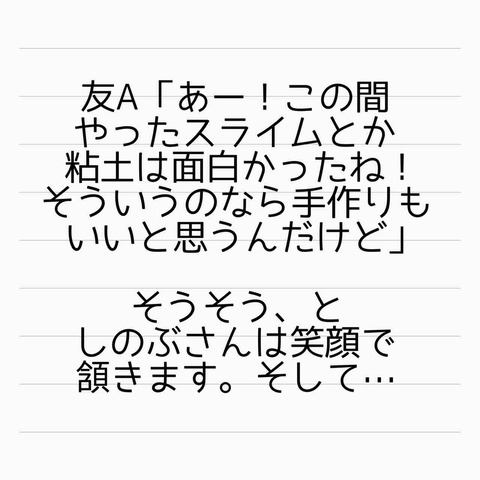 友A「あー！この間
やったスライムとか
粘土は面白かったね！
そういうのなら手作りも
いいと思うんだけど」
そうそう、と
しのぶさんは笑顔で
頷きます。そして…